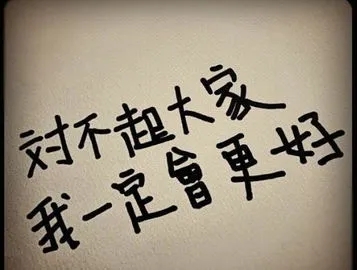 対不起大家
我一定會更好